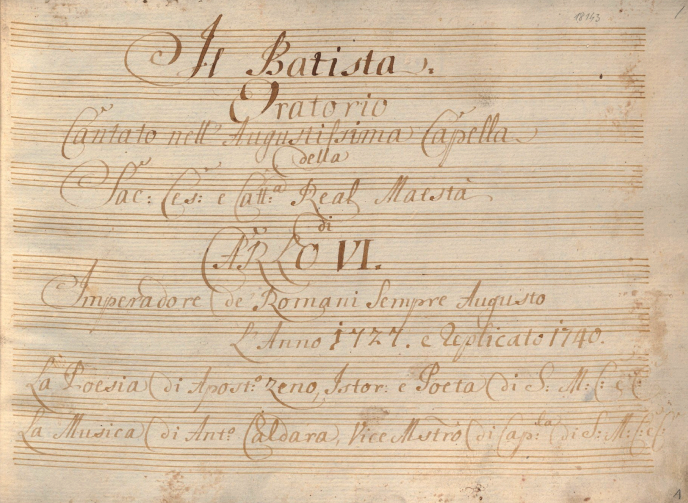 18163
Il Batista.
Oratorio
Cantato nell' Augustissima Capella
della
Sac: Ces: e Catt:a Real Maestà
di
CARLO VI.
Imperadore de Romani Sempre Augusto
L'Anno 1727. e Replicato 1740.
La Poesia di Apost:o Zeno, Istor: e Poeta di S: M: C: e C:
La Musica di Ant:o Caldara, Vice Mstrò di Cap:la di S: M: C: e C:
1